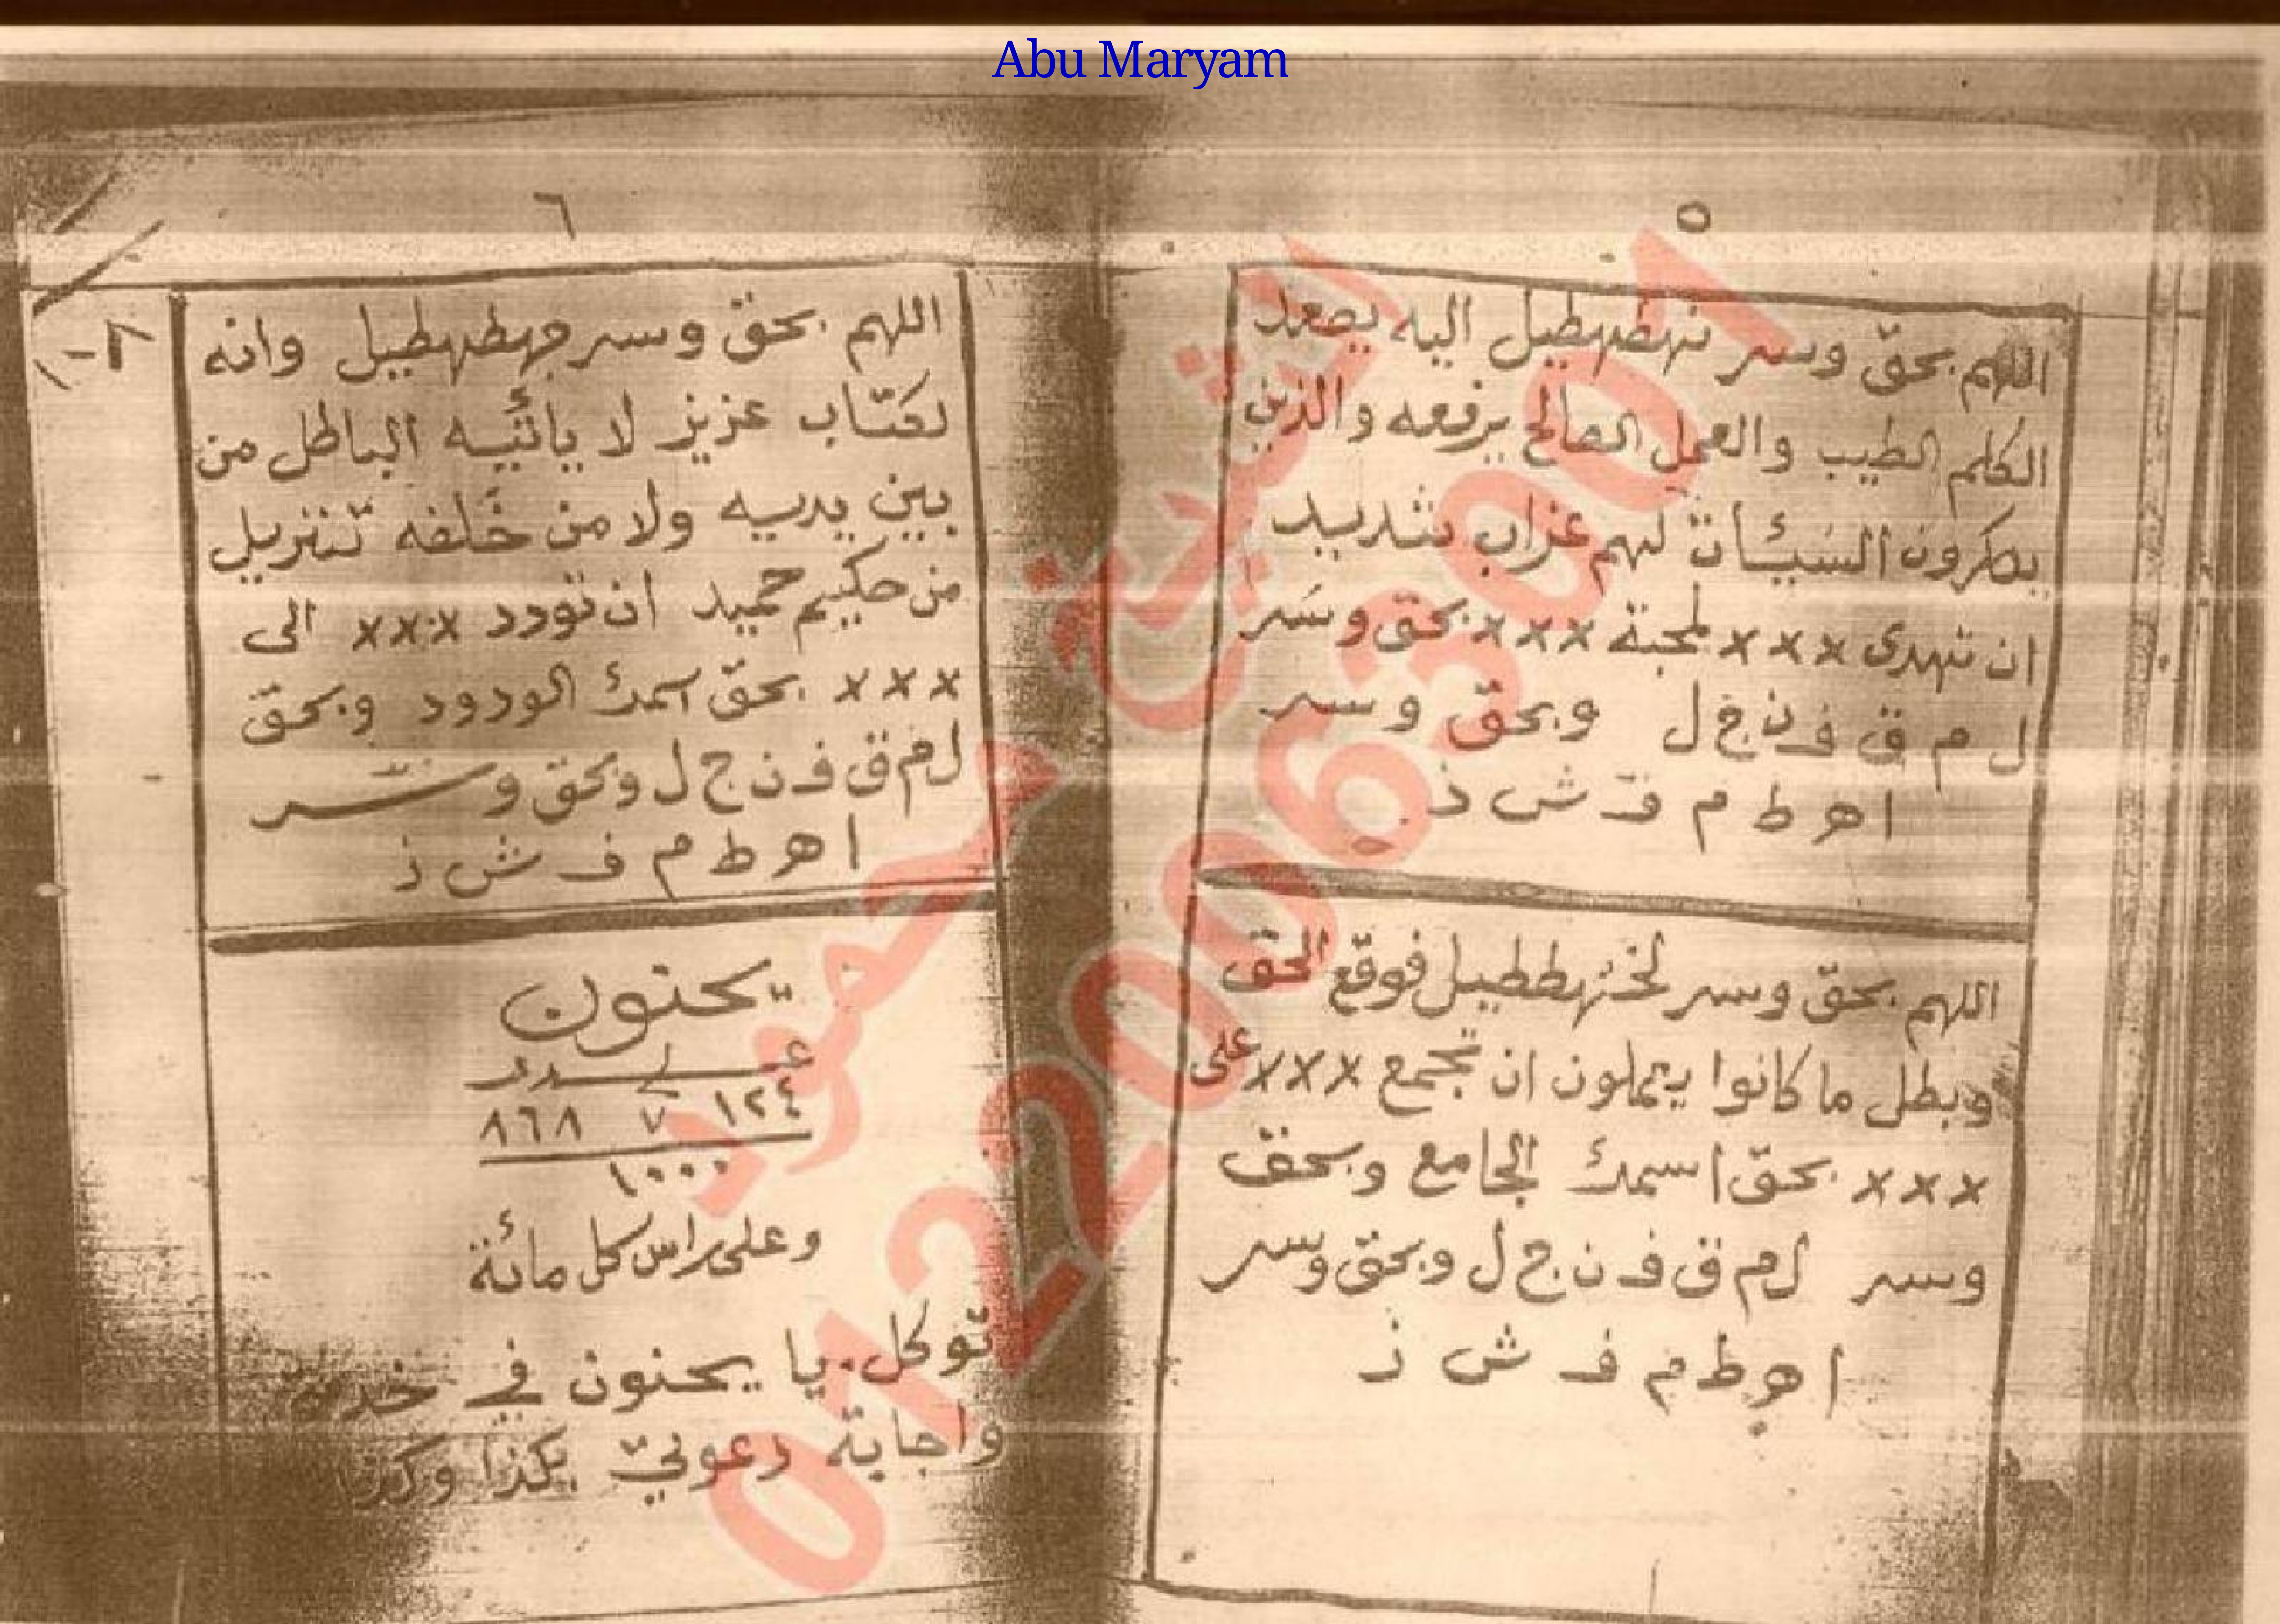 Abu Maryam
٥
اللهم بحق وسر نهطهطيل اليه يصعد
الكلم الطيب والعمل الصالح يرفعه والذين
يمكرون السيئات لهم عذاب شديد
ان تهدى ××× لمحبة ××× بحق وسر
ل م ق ف ن ج ل وبحق وسر
ا هـ ط م ف ش ذ
اللهم بحق وسر لخهططيل فوقع الحق
وبطل ما كانوا يعملون ان تجمع ××× على
××× بحق اسمك الجامع وبحق
وسر ل م ق ف ن ج ل وبحق وسر
ا هـ ط م ف ش ذ
٦
اللهم بحق وسر جهطهطيل وانه
لكتاب عزيز لا يأتيه الباطل من
بين يديه ولا من خلفه تنزيل
من حكيم حميد ان تودد ××× الى
××× بحق اسمك الودود وبحق
ل م ق ف ن ج ل وبحق وسر
ا هـ ط م ف ش ذ
يحنون
عدد
١٢٤ ٧ ٨٦٨
١٠٠٠
وعلى راس كل مائة
توكل يا يحنون في خدمتي
واجابة دعوتي بكذا وكذا
الشيخ محمود
01220063001